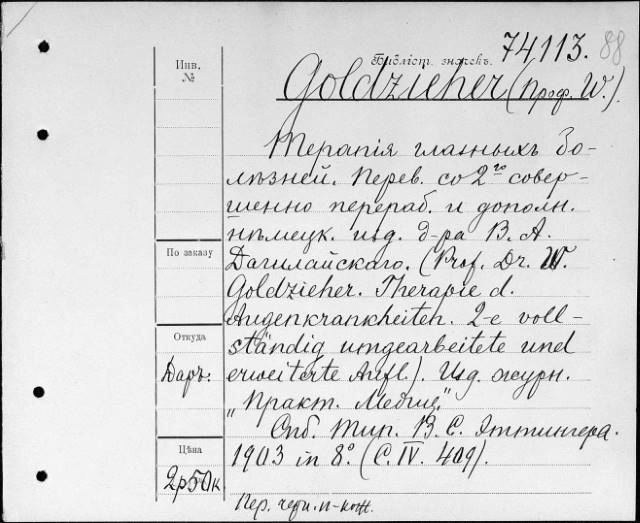 74113. 88
Инв. №
Библіст. значекъ.
Goldzieher (Проф. W.).
Терапія глазныхъ бо-
лѣзней. Перев. со 2го совер-
шенно перераб. и дополн.
нѣмецк. изд. д-ра В. А.
По заказу
Дагилайскаго. (Prof. Dr. W.
Goldzieher. Therapie d.
Augenkrankheiten. 2-e voll-
Откуда
ständig umgearbeitete und
Даръ. erweiterte Aufl.). Изд. журн.
"Практ. Медиц."
Спб. Тип. В. С. Эттингера.
Цѣна
1903 in 8º. (С. IV. 409).
2р50к
Пер. черн. п-кож.